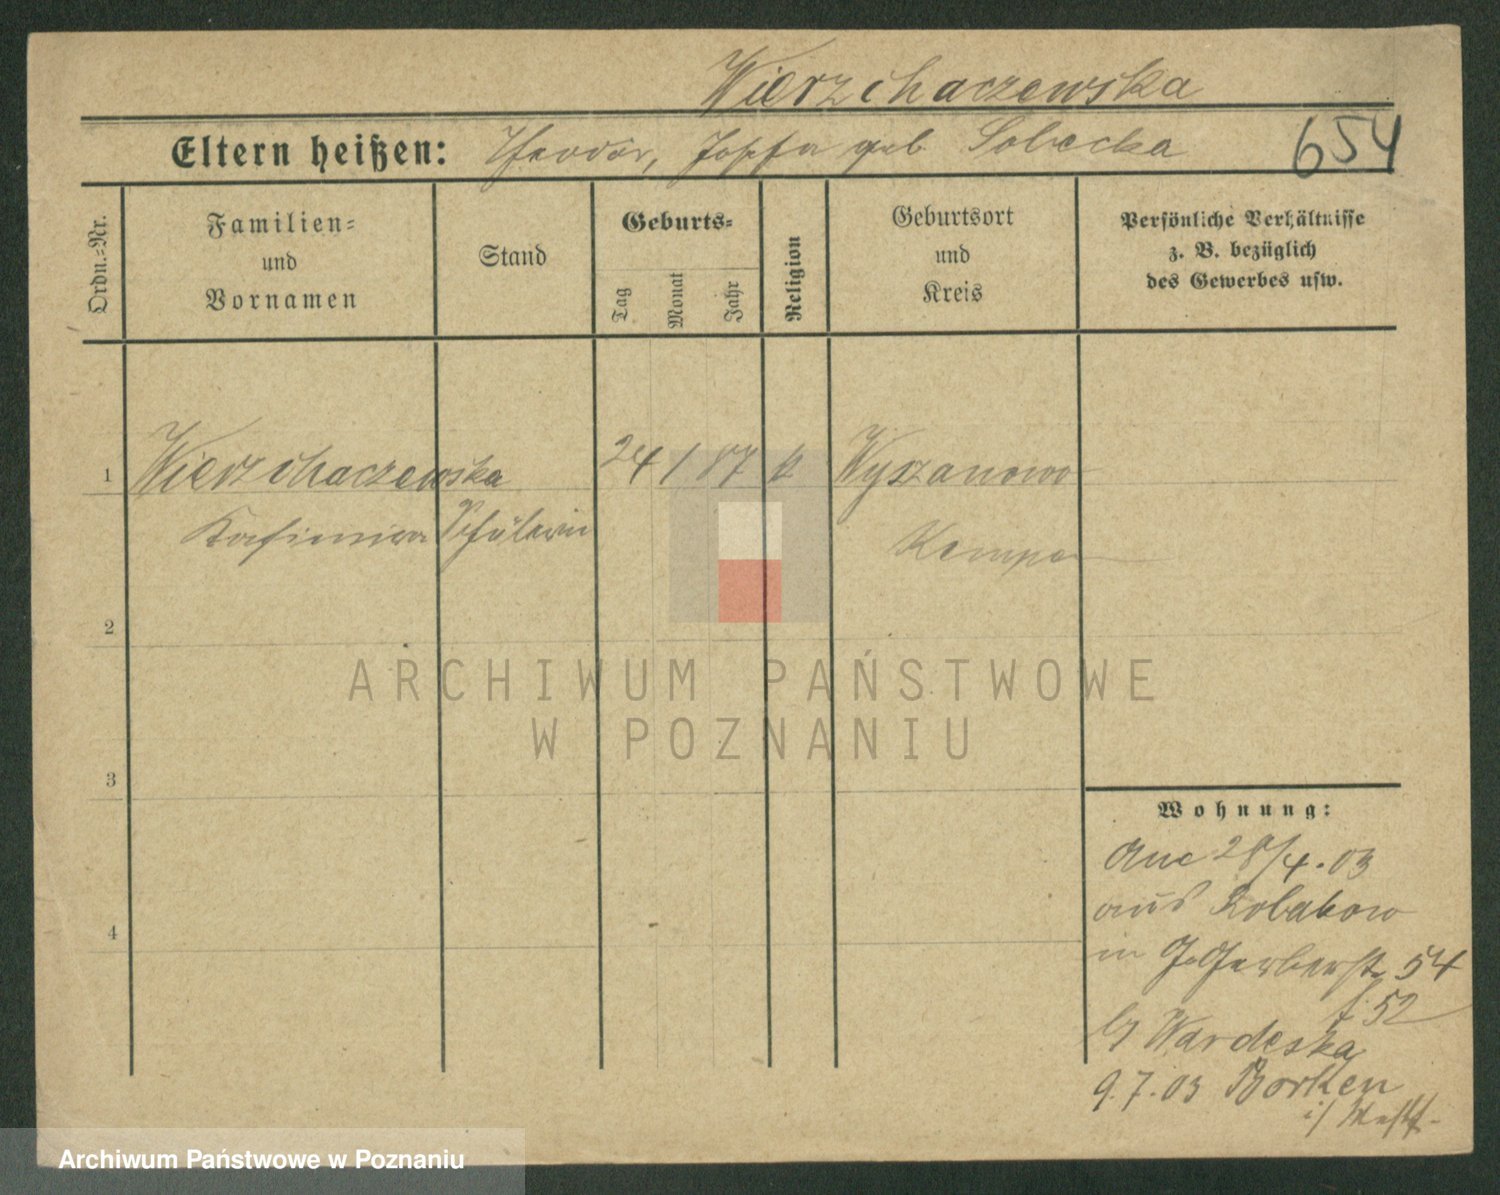 Wierzchaczewska
Eltern heißen: Theodor, Josefa geb. Sobecka 654
Ordn.-Nr.
Familien-
und
Vornamen
Stand
Geburts-
Tag
Monat
Jahr
Religion
Geburtsort
und
Kreis
Persönliche Verhältnisse
z. B. bezüglich
des Gewerbes usw.
1 Wierzchaczewska 24 1 87 k Wyszanowo
Kasimira Schülerin Kempen
2
3
4
Wohnung:
28/4.03
aus
in Gr Gerberstr 54
f. 52
b/ Wardeska
9.7.03 Borken
i/ Westf.
ARCHIWUM PAŃSTWOWE
W POZNANIU
Archiwum Państwowe w Poznaniu